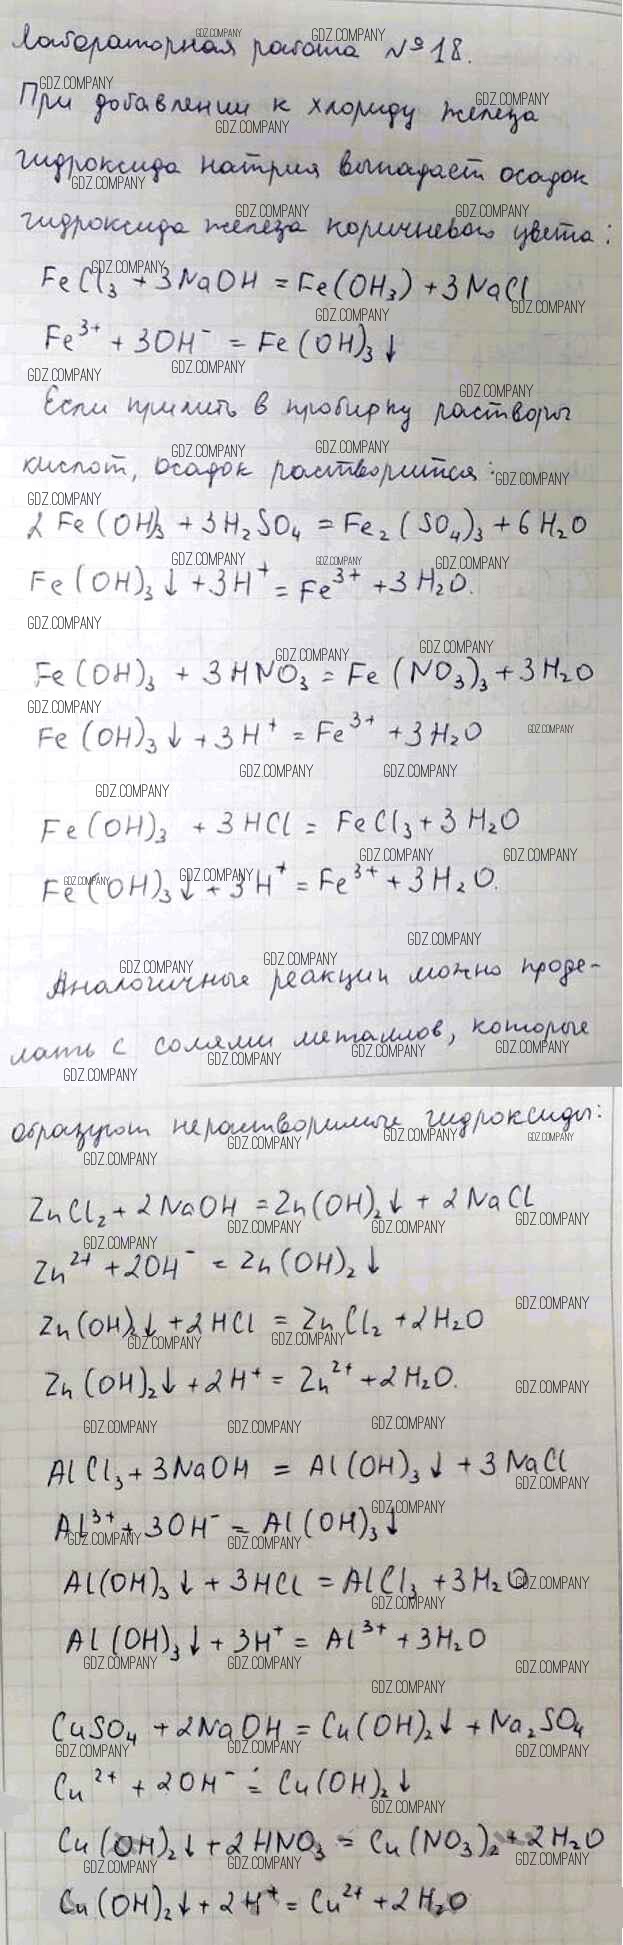 Лабораторная работа №18.
При добавлении к хлориду железа
гидроксида натрия выпадает осадок
гидроксида железа коричневого цвета:
FeCl₃ + 3NaOH = Fe(OH₃) + 3NaCl
Fe³⁺ + 3OH⁻ = Fe(OH)₃↓
Если прилить в пробирку растворы
кислот, осадок растворится:
2Fe(OH)₃ + 3H₂SO₄ = Fe₂(SO₄)₃ + 6H₂O
Fe(OH)₃↓ + 3H⁺ = Fe³⁺ + 3H₂O.
Fe(OH)₃ + 3HNO₃ = Fe(NO₃)₃ + 3H₂O
Fe(OH)₃↓ + 3H⁺ = Fe³⁺ + 3H₂O
Fe(OH)₃ + 3HCl = FeCl₃ + 3H₂O
Fe(OH)₃↓ + 3H⁺ = Fe³⁺ + 3H₂O.
Аналогичные реакции можно проде-
лать с солями металлов, которые
образуют нерастворимые гидроксиды:
ZnCl₂ + 2NaOH = Zn(OH)₂↓ + 2NaCl
Zn²⁺ + 2OH⁻ = Zn(OH)₂↓
Zn(OH)₂↓ + 2HCl = ZnCl₂ + 2H₂O
Zn(OH)₂↓ + 2H⁺ = Zn²⁺ + 2H₂O.
AlCl₃ + 3NaOH = Al(OH)₃↓ + 3NaCl
Al³⁺ + 3OH⁻ = Al(OH)₃↓
Al(OH)₃↓ + 3HCl = AlCl₃ + 3H₂O
Al(OH)₃↓ + 3H⁺ = Al³⁺ + 3H₂O
CuSO₄ + 2NaOH = Cu(OH)₂↓ + Na₂SO₄
Cu²⁺ + 2OH⁻ = Cu(OH)₂↓
Cu(OH)₂↓ + 2HNO₃ = Cu(NO₃)₂ + 2H₂O
Cu(OH)₂↓ + 2H⁺ = Cu²⁺ + 2H₂O